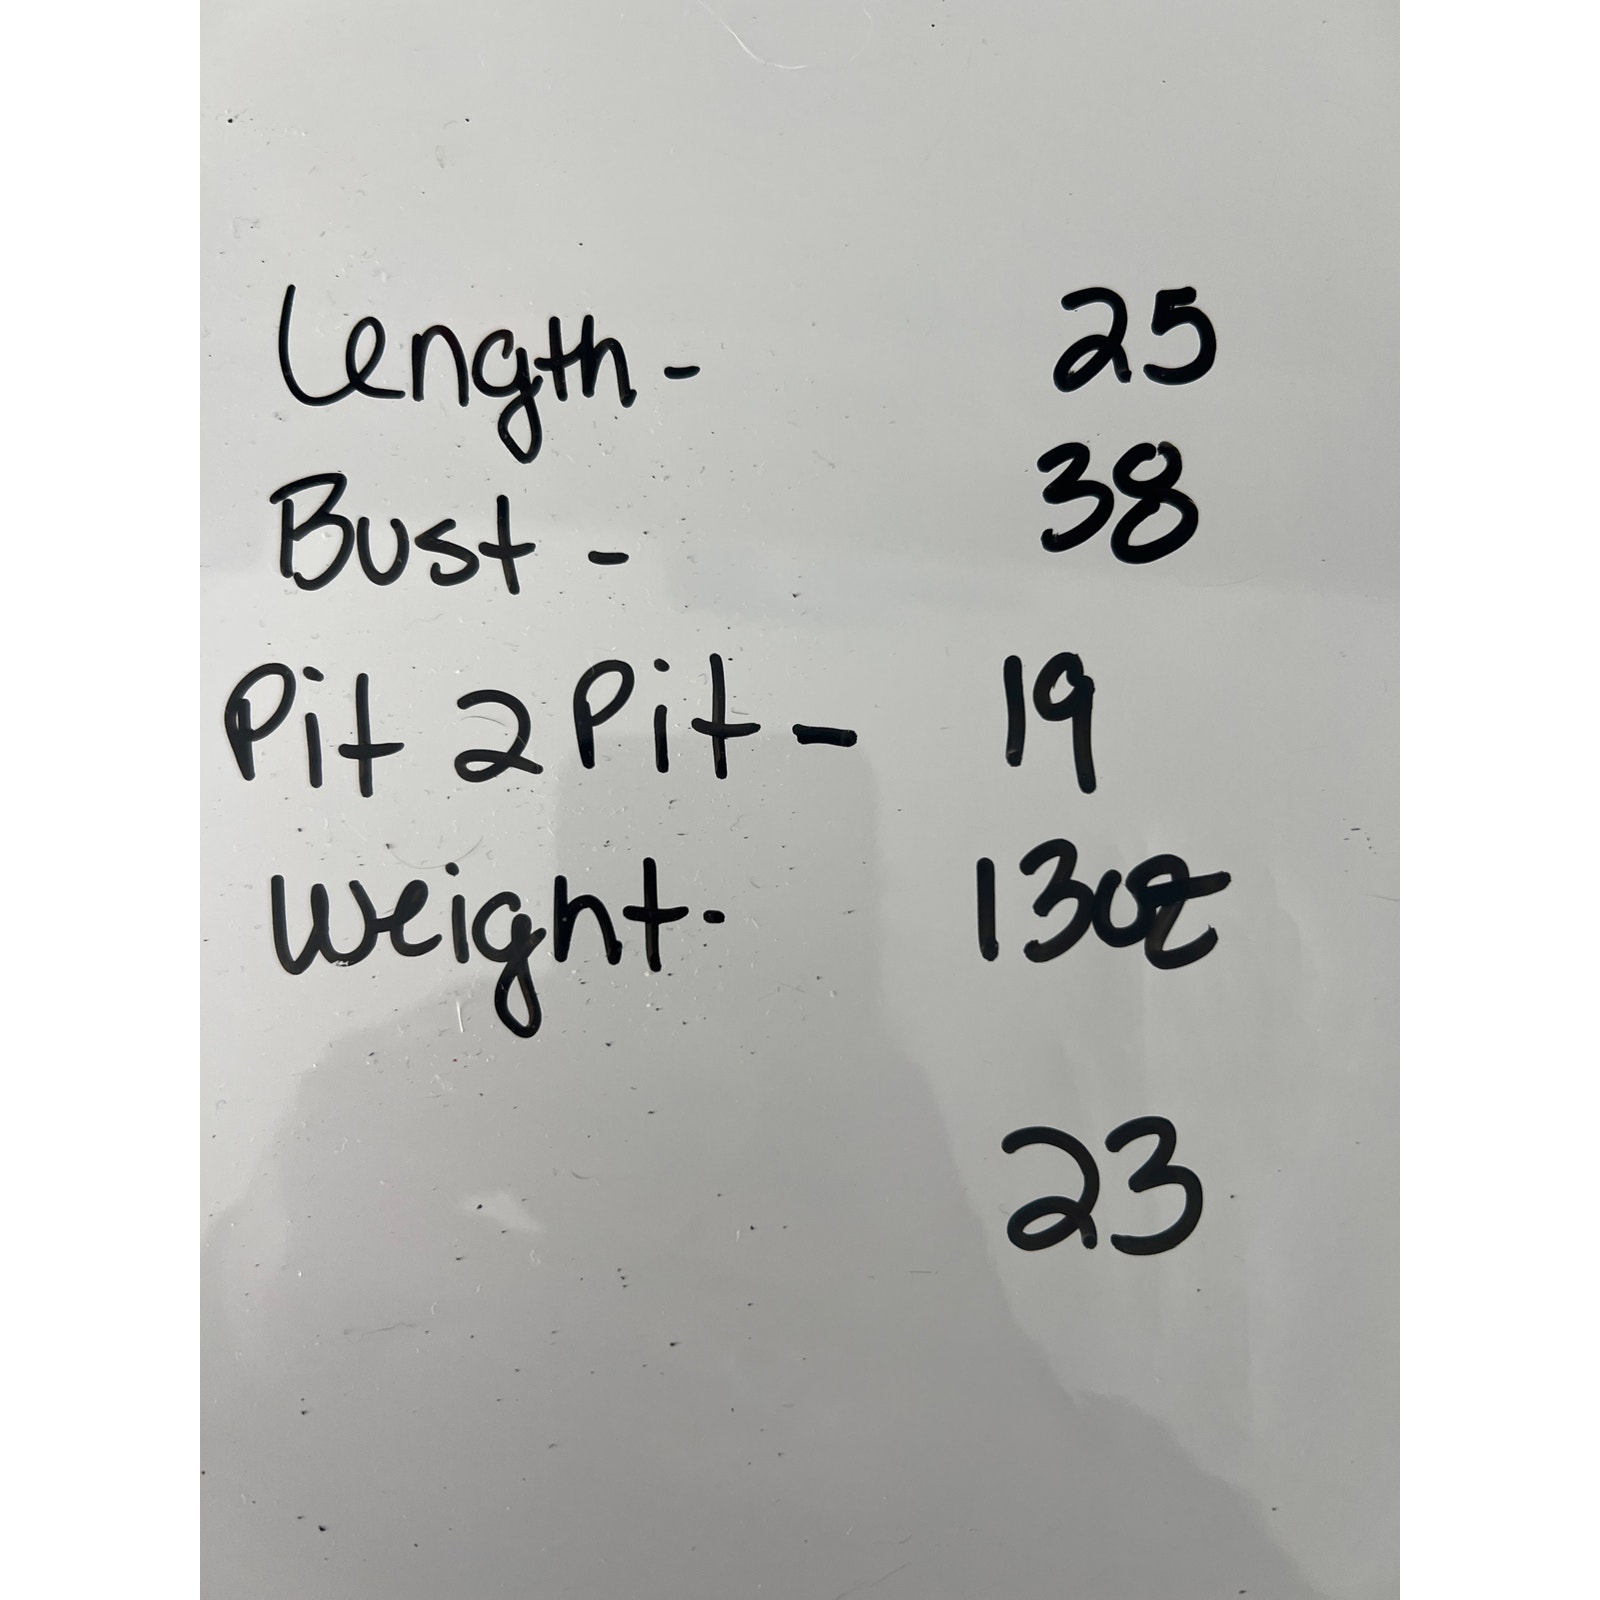 Length - 25
Bust - 38
Pit 2 Pit - 19
Weight - 13oz
23